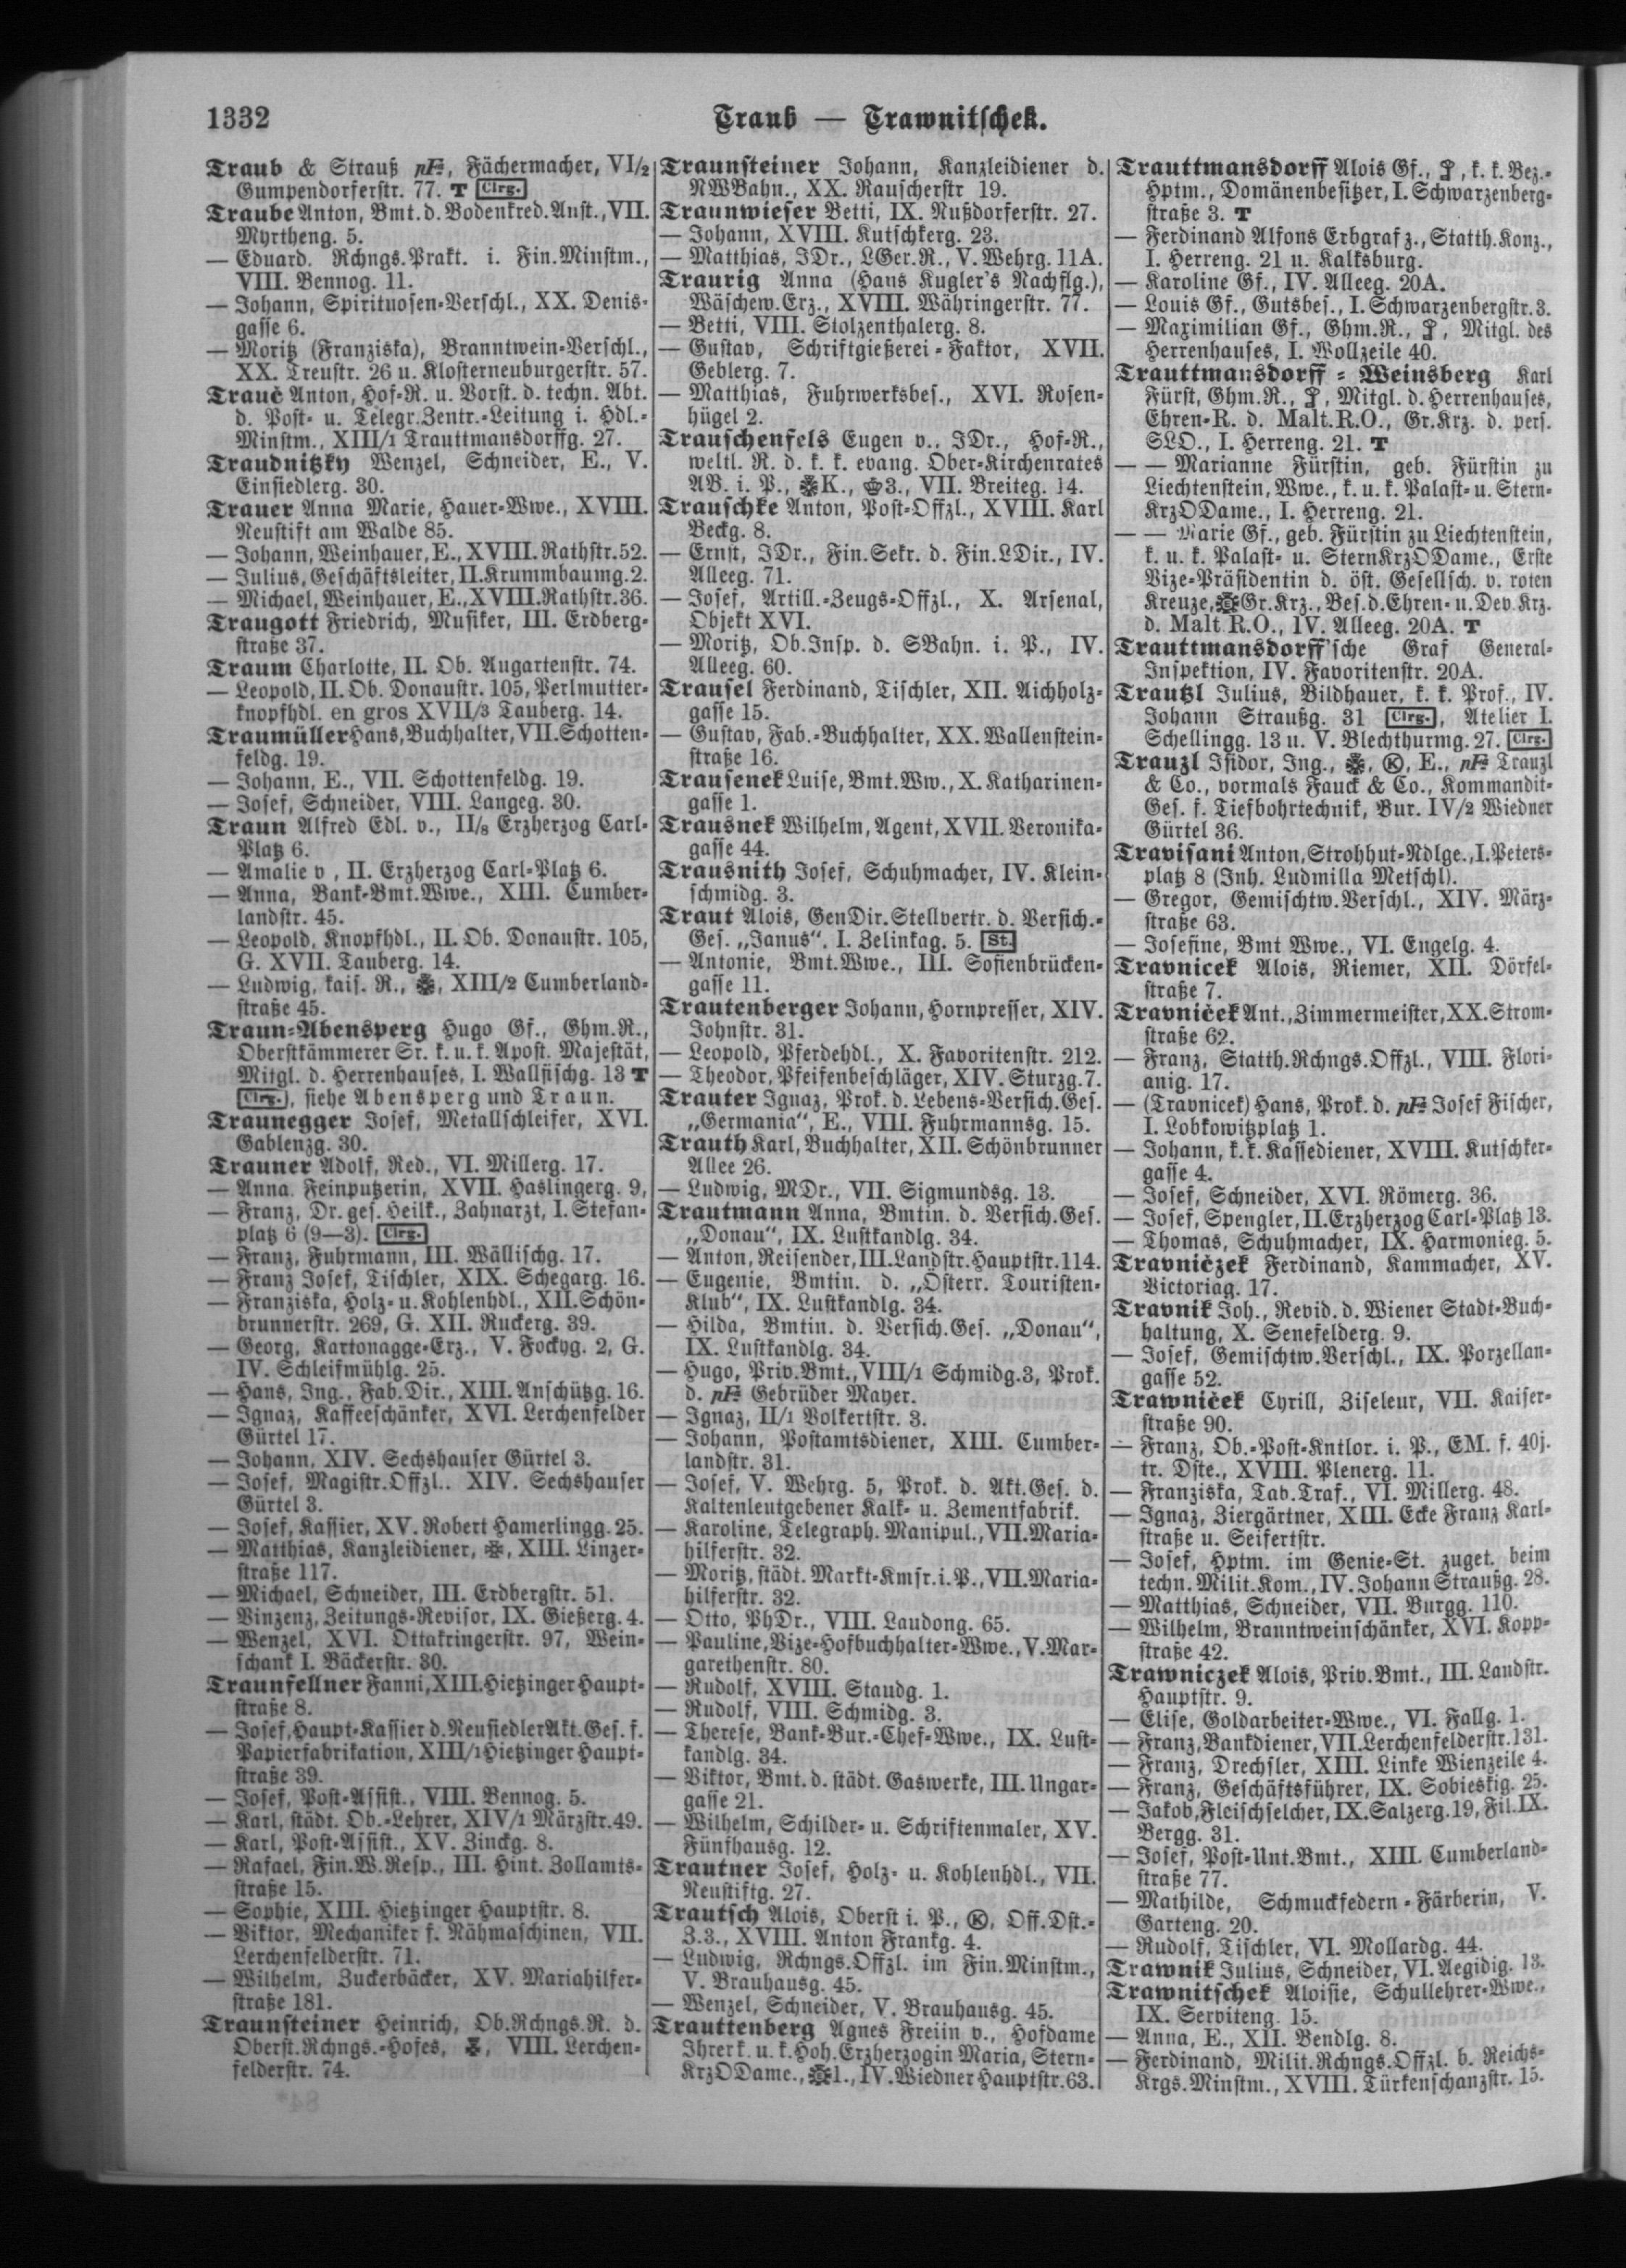 1332
Traub — Trawnitschek.
Traub & Strauß pFa, Fächermacher, VI/2
Gumpendorferstr. 77. T Clrg.
Traube Anton, Bmt. d. Bodenkred. Anst., VII.
Myrtheng. 5.
— Eduard. Rchngs.Prakt. i. Fin.Minstm.,
VIII. Bennog. 11.
— Johann, Spirituosen-Verschl., XX. Denis-
gasse 6.
— Moritz (Franziska), Branntwein-Verschl.,
XX. Treustr. 26 u. Klosterneuburgerstr. 57.
Trauč Anton, Hof-R. u. Vorst. d. techn. Abt.
d. Post- u. Telegr.Zentr.-Leitung i. Hdl.-
Minstm., XIII/1 Trauttmansdorffg. 27.
Traudnitzky Wenzel, Schneider, E., V.
Einsiedlerg. 30.
Trauer Anna Marie, Hauer-Wwe., XVIII.
Neustift am Walde 85.
— Johann, Weinhauer, E., XVIII. Rathstr. 52.
— Julius, Geschäftsleiter, II. Krummbaumg. 2.
— Michael, Weinhauer, E., XVIII. Rathstr. 36.
Traugott Friedrich, Musiker, III. Erdberg-
straße 37.
Traum Charlotte, II. Ob. Augartenstr. 74.
— Leopold, II. Ob. Donaustr. 105, Perlmutter-
knopfhdl. en gros XVII/3 Tauberg. 14.
Traumüller Hans, Buchhalter, VII. Schotten-
feldg. 19.
— Johann, E., VII. Schottenfeldg. 19.
— Josef, Schneider, VIII. Langeg. 30.
Traun Alfred Edl. v., II/8 Erzherzog Carl-
Platz 6.
— Amalie v , II. Erzherzog Carl-Platz 6.
— Anna, Bank-Bmt.Wwe., XIII. Cumber-
landstr. 45.
— Leopold, Knopfhdl., II. Ob. Donaustr. 105,
G. XVII. Tauberg. 14.
— Ludwig, kais. R., XIII/2 Cumberland-
straße 45.
Traun-Abensperg Hugo Gf., Ghm.R.,
Oberstkämmerer Sr. k. u. k. Apost. Majestät,
Mitgl. d. Herrenhauses, I. Wallfischg. 13 T
Clrg., siehe Abensperg und Traun.
Traunegger Josef, Metallschleifer, XVI.
Gablenzg. 30.
Trauner Adolf, Red., VI. Millerg. 17.
— Anna, Feinputzerin, XVII. Haslingerg. 9,
— Franz, Dr. ges. Heilk., Zahnarzt, I. Stefan-
platz 6 (9—3). Clrg.
— Franz, Fuhrmann, III. Wällischg. 17.
— Franz Josef, Tischler, XIX. Schegarg. 16.
— Franziska, Holz- u. Kohlenhdl., XII. Schön-
brunnerstr. 269, G. XII. Ruckerg. 39.
— Georg, Kartonagge-Erz., V. Fockyg. 2, G.
IV. Schleifmühlg. 25.
— Hans, Ing., Fab.Dir., XIII. Anschützg. 16.
— Ignaz, Kaffeeschänker, XVI. Lerchenfelder
Gürtel 17.
— Johann, XIV. Sechshauser Gürtel 3.
— Josef, Magistr.Offzl.. XIV. Sechshauser
Gürtel 3.
— Josef, Kassier, XV. Robert Hamerlingg. 25.
— Matthias, Kanzleidiener, XIII. Linzer-
straße 117.
— Michael, Schneider, III. Erdbergstr. 51.
— Vinzenz, Zeitungs-Revisor, IX. Gießerg. 4.
— Wenzel, XVI. Ottakringerstr. 97, Wein-
schank I. Bäckerstr. 30.
Traunfellner Fanni, XIII. Hietzinger Haupt-
straße 8.
— Josef, Haupt-Kassier d. Neusiedler Akt.Ges. f.
Papierfabrikation, XIII/1 Hietzinger Haupt-
straße 39.
— Josef, Post-Assist., VIII. Bennog. 5.
— Karl, städt. Ob.-Lehrer, XIV/1 Märzstr. 49.
— Karl, Post-Assist., XV. Zinckg. 8.
— Rafael, Fin.W.Resp., III. Hint. Zollamts-
straße 15.
— Sophie, XIII. Hietzinger Hauptstr. 8.
— Viktor, Mechaniker f. Nähmaschinen, VII.
Lerchenfelderstr. 71.
— Wilhelm, Zuckerbäcker, XV. Mariahilfer-
straße 181.
Traunsteiner Heinrich, Ob.Rchngs.R. d.
Oberst.Rchngs.-Hofes, VIII. Lerchen-
felderstr. 74.
Traunsteiner Johann, Kanzleidiener d.
NWBahn., XX. Rauscherstr 19.
Traunwieser Betti, IX. Nußdorferstr. 27.
— Johann, XVIII. Kutschkerg. 23.
— Matthias, JDr., LGer.R., V. Wehrg. 11A.
Traurig Anna (Hans Kugler's Nachflg.),
Wäschew.Erz., XVIII. Währingerstr. 77.
— Betti, VIII. Stolzenthalerg. 8.
— Gustav, Schriftgießerei-Faktor, XVII.
Geblerg. 7.
— Matthias, Fuhrwerksbes., XVI. Rosen-
hügel 2.
Trauschenfels Eugen v., JDr., Hof-R.,
weltl. R. d. k. k. evang. Ober-Kirchenrates
AB. i. P., K., 3., VII. Breiteg. 14.
Trauschke Anton, Post-Offzl., XVIII. Karl
Beckg. 8.
— Ernst, JDr., Fin.Sekr. d. Fin.LDir., IV.
Alleeg. 71.
— Josef, Artill.-Zeugs-Offzl., X. Arsenal,
Objekt XVI.
— Moritz, Ob.Insp. d. SBahn. i. P., IV.
Alleeg. 60.
Trausel Ferdinand, Tischler, XII. Aichholz-
gasse 15.
— Gustav, Fab.-Buchhalter, XX. Wallenstein-
straße 16.
Trausenek Luise, Bmt.Ww., X. Katharinen-
gasse 1.
Trausnek Wilhelm, Agent, XVII. Veronika-
gasse 44.
Trausnith Josef, Schuhmacher, IV. Klein-
schmidg. 3.
Traut Alois, GenDir.Stellvertr. d. Versich.-
Ges. „Janus“, I. Zelinkag. 5. St.
— Antonie, Bmt.Wwe., III. Sofienbrücken-
gasse 11.
Trautenberger Johann, Hornpresser, XIV.
Johnstr. 31.
— Leopold, Pferdehdl., X. Favoritenstr. 212.
— Theodor, Pfeifenbeschläger, XIV. Sturzg. 7.
Trauter Ignaz, Prok. d. Lebens-Versich.Ges.
„Germania“, E., VIII. Fuhrmannsg. 15.
Trauth Karl, Buchhalter, XII. Schönbrunner
Allee 26.
— Ludwig, MDr., VII. Sigmundsg. 13.
Trautmann Anna, Bmtin. d. Versich.Ges.
„Donau“, IX. Lustkandlg. 34.
— Anton, Reisender, III. Landstr. Hauptstr. 114.
— Eugenie, Bmtin. d. „Österr. Touristen-
Klub“, IX. Lustkandlg. 34.
— Hilda, Bmtin. d. Versich.Ges. „Donau“,
IX. Lustkandlg. 34.
— Hugo, Priv.Bmt., VIII/1 Schmidg. 3, Prok.
d. pFa Gebrüder Mayer.
— Ignaz, II/1 Volkertstr. 3.
— Johann, Postamtsdiener, XIII. Cumber-
landstr. 31.
— Josef, V. Wehrg. 5, Prok. d. Akt.Ges. d.
Kaltenleutgebener Kalk- u. Zementfabrik.
— Karoline, Telegraph. Manipul., VII. Maria-
hilferstr. 32.
— Moritz, städt. Markt-Kmsr. i. P., VII. Maria-
hilferstr. 32.
— Otto, PhDr., VIII. Laudong. 65.
— Pauline, Vize-Hofbuchhalter-Wwe., V. Mar-
garethenstr. 80.
— Rudolf, XVIII. Staudg. 1.
— Rudolf, VIII. Schmidg. 3.
— Therese, Bank-Bur.-Chef-Wwe., IX. Lust-
kandlg. 34.
— Viktor, Bmt. d. städt. Gaswerke, III. Ungar-
gasse 21.
— Wilhelm, Schilder- u. Schriftenmaler, XV.
Fünfhausg. 12.
Trautner Josef, Holz- u. Kohlenhdl., VII.
Neustiftg. 27.
Trautsch Alois, Oberst i. P., Ⓚ, Off.Dst.-
Z.3., XVIII. Anton Frankg. 4.
— Ludwig, Rchngs.Offzl. im Fin.Minstm.,
V. Brauhausg. 45.
— Wenzel, Schneider, V. Brauhausg. 45.
Trauttenberg Agnes Freiin v., Hofdame
Ihrer k. u. k. Hoh. Erzherzogin Maria, Stern-
KrzODame., 1., IV. Wiedner Hauptstr. 63.
Trauttmansdorff Alois Gf., k. k. Bez.-
Hptm., Domänenbesitzer, I. Schwarzenberg-
straße 3. T
— Ferdinand Alfons Erbgraf z., Statth.Konz.,
I. Herreng. 21 u. Kalksburg.
— Karoline Gf., IV. Alleeg. 20A.
— Louis Gf., Gutsbes., I. Schwarzenbergstr. 3.
— Maximilian Gf., Ghm.R., Mitgl. des
Herrenhauses, I. Wollzeile 40.
Trauttmansdorff-Weinsberg Karl
Fürst, Ghm.R., Mitgl. d. Herrenhauses,
Ehren-R. d. Malt.R.O., Gr.Krz. d. pers.
SLO., I. Herreng. 21. T
— — Marianne Fürstin, geb. Fürstin zu
Liechtenstein, Wwe., k. u. k. Palast- u. Stern-
KrzODame., I. Herreng. 21.
— — Marie Gf., geb. Fürstin zu Liechtenstein,
k. u. k. Palast- u. SternKrzODame., Erste
Vize-Präsidentin d. öst. Gesellsch. v. roten
Kreuze, Gr.Krz., Bes. d. Ehren- u. Dev.Krz.
d. Malt.R.O., IV. Alleeg. 20A. T
Trauttmansdorff'sche Graf General-
Inspektion, IV. Favoritenstr. 20A.
Trautzl Julius, Bildhauer, k. k. Prof., IV.
Johann Straußg. 31 Clrg., Atelier I.
Schellingg. 13 u. V. Blechthurmg. 27. Clrg.
Trauzl Isidor, Ing., Ⓚ, E., pFa Trauzl
& Co., vormals Fauck & Co., Kommandit-
Ges. f. Tiefbohrtechnik, Bur. IV/2 Wiedner
Gürtel 36.
Travisani Anton, Strohhut-Ndlge., I. Peters-
platz 8 (Inh. Ludmilla Metschl).
— Gregor, Gemischtw.Verschl., XIV. März-
straße 63.
— Josefine, Bmt Wwe., VI. Engelg. 4.
Travnicek Alois, Riemer, XII. Dörfel-
straße 7.
Travniček Ant., Zimmermeister, XX. Strom-
straße 62.
— Franz, Statth.Rchngs.Offzl., VIII. Flori-
anig. 17.
— (Travnicek) Hans, Prok. d. pFa Josef Fischer,
I. Lobkowitzplatz 1.
— Johann, k. k. Kassediener, XVIII. Kutschker-
gasse 4.
— Josef, Schneider, XVI. Römerg. 36.
— Josef, Spengler, II. Erzherzog Carl-Platz 13.
— Thomas, Schuhmacher, IX. Harmonieg. 5.
Travniczek Ferdinand, Kammacher, XV.
Victoriag. 17.
Travnik Joh., Revid. d. Wiener Stadt-Buch-
haltung, X. Senefelderg. 9.
— Josef, Gemischtw.Verschl., IX. Porzellan-
gasse 52.
Trawniček Cyrill, Ziseleur, VII. Kaiser-
straße 90.
— Franz, Ob.-Post-Kntlor. i. P., EM. f. 40j.
tr. Dste., XVIII. Plenerg. 11.
— Franziska, Tab.Traf., VI. Millerg. 48.
— Ignaz, Ziergärtner, XIII. Ecke Franz Karl-
straße u. Seifertstr.
— Josef, Hptm. im Genie-St. zuget. beim
techn. Milit.Kom., IV. Johann Straußg. 28.
— Matthias, Schneider, VII. Burgg. 110.
— Wilhelm, Branntweinschänker, XVI. Kopp-
straße 42.
Trawniczek Alois, Priv.Bmt., III. Landstr.
Hauptstr. 9.
— Elise, Goldarbeiter-Wwe., VI. Fallg. 1.
— Franz, Bankdiener, VII. Lerchenfelderstr. 131.
— Franz, Drechsler, XIII. Linke Wienzeile 4.
— Franz, Geschäftsführer, IX. Sobieskig. 25.
— Jakob, Fleischselcher, IX. Salzerg. 19, Fil. IX.
Bergg. 31.
— Josef, Post-Unt.Bmt., XIII. Cumberland-
straße 77.
— Mathilde, Schmuckfedern-Färberin, V.
Garteng. 20.
— Rudolf, Tischler, VI. Mollardg. 44.
Trawnik Julius, Schneider, VI. Aegidig. 13.
Trawnitschek Aloisie, Schullehrer-Wwe.,
IX. Serviteng. 15.
— Anna, E., XII. Bendlg. 8.
— Ferdinand, Milit.Rchngs.Offzl. b. Reichs-
Krgs.Minstm., XVIII. Türkenschanzstr. 15.